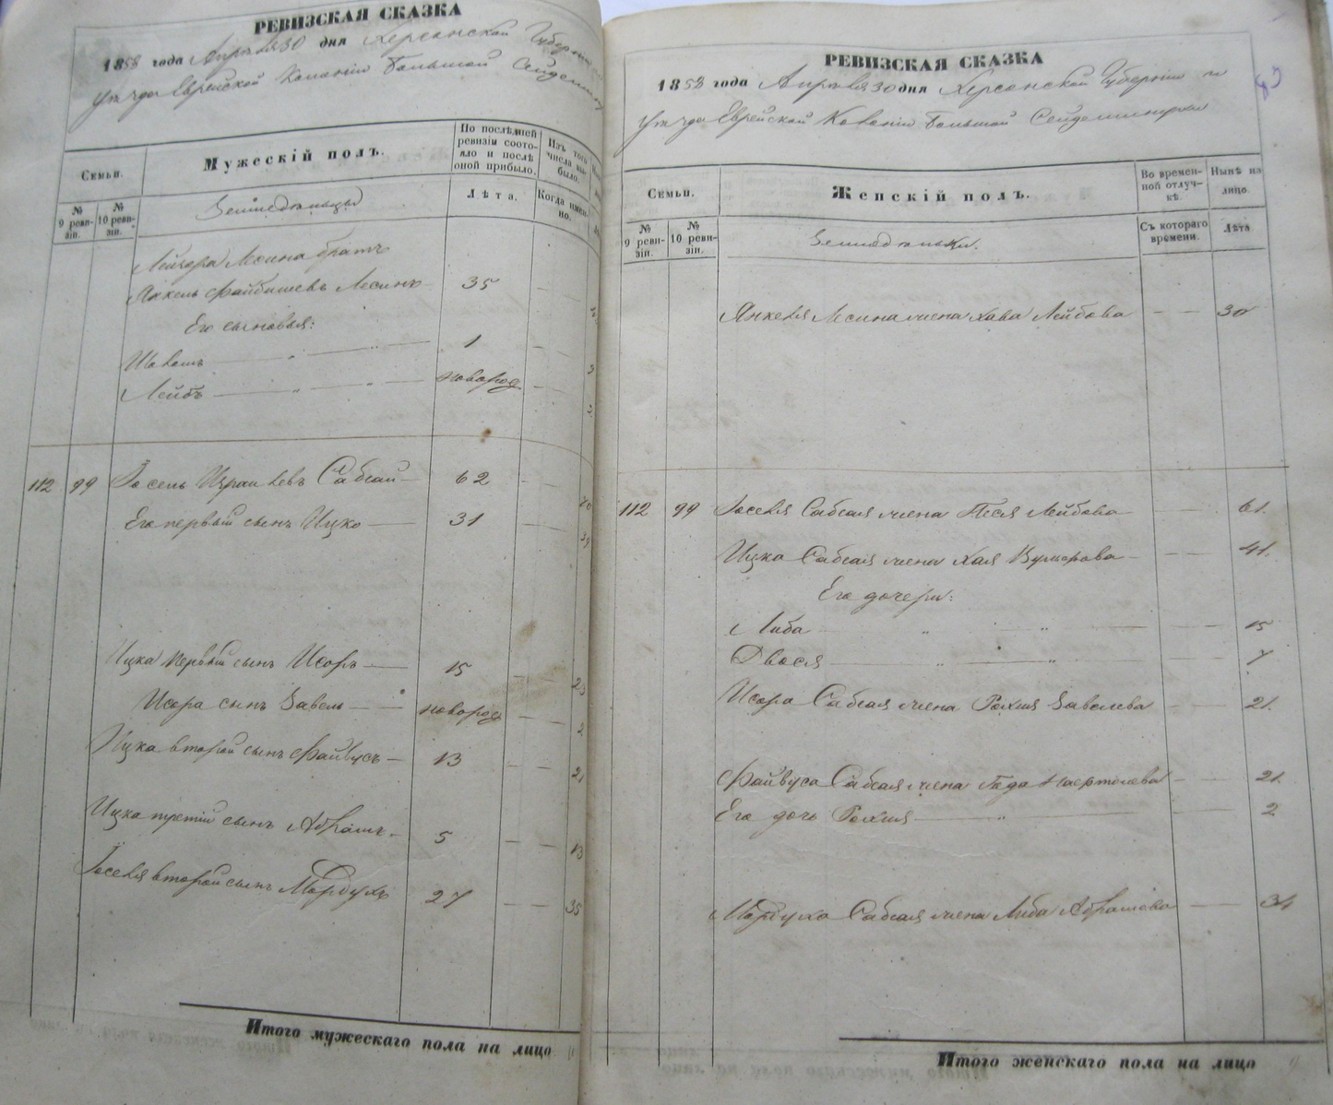 РЕВИЗСКАЯ СКАЗКА
1858 года Апреля 30 дня Херсонской Губерніи
уѣзда Еврейской Колоніи Большой
Семьи.
№ 9 ревизіи.
№ 10 ревизіи.
Мужескій полъ.
По послѣдней ревизіи состояло и послѣ оной прибыло.
Изъ того числа выбыло.
Лѣта.
Когда именно.
Земледельцы
Лейзера Лесина братъ
Янкель Файбишевъ Лесинъ 35
Его сыновья:
1
Лейбъ новород
112 99 Іосель Израилевъ Сабсай 62
Его первый сынъ Ицко 31
Ицка первый сынъ Исоръ 15
Исора сынъ Завель новород
Ицка второй сынъ Файвусъ 13
Ицка третій сынъ Абрамъ 5
Іоселя второй сынъ Мордухъ 27
Итого мужескаго пола на лицо
РЕВИЗСКАЯ СКАЗКА
1858 года Апреля 30 дня Херсонской Губерніи
уѣзда Еврейской Колоніи Большой
Семьи.
№ 9 ревизіи.
№ 10 ревизіи.
Женскій полъ.
Во временной отлучкѣ.
Нынѣ на лицо.
Съ котораго времени.
Лѣта
Янкеля Лесина жена Хава Лейбова 30
112 99 Іоселя Сабсая жена Песя Лейбова 61.
Ицка Сабсая жена Хая 41.
Его дочери:
Либа 15
Двося 7
Исора Сабсая жена Рохля Завелева 21.
Файвуса Сабсая жена 21.
Его дочь Рохля 2
Мордуха Сабсая жена Либа Абрамова 34
Итого женскаго пола на лицо